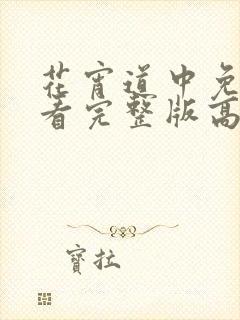 花宵道中免
看完整版高
寳拉